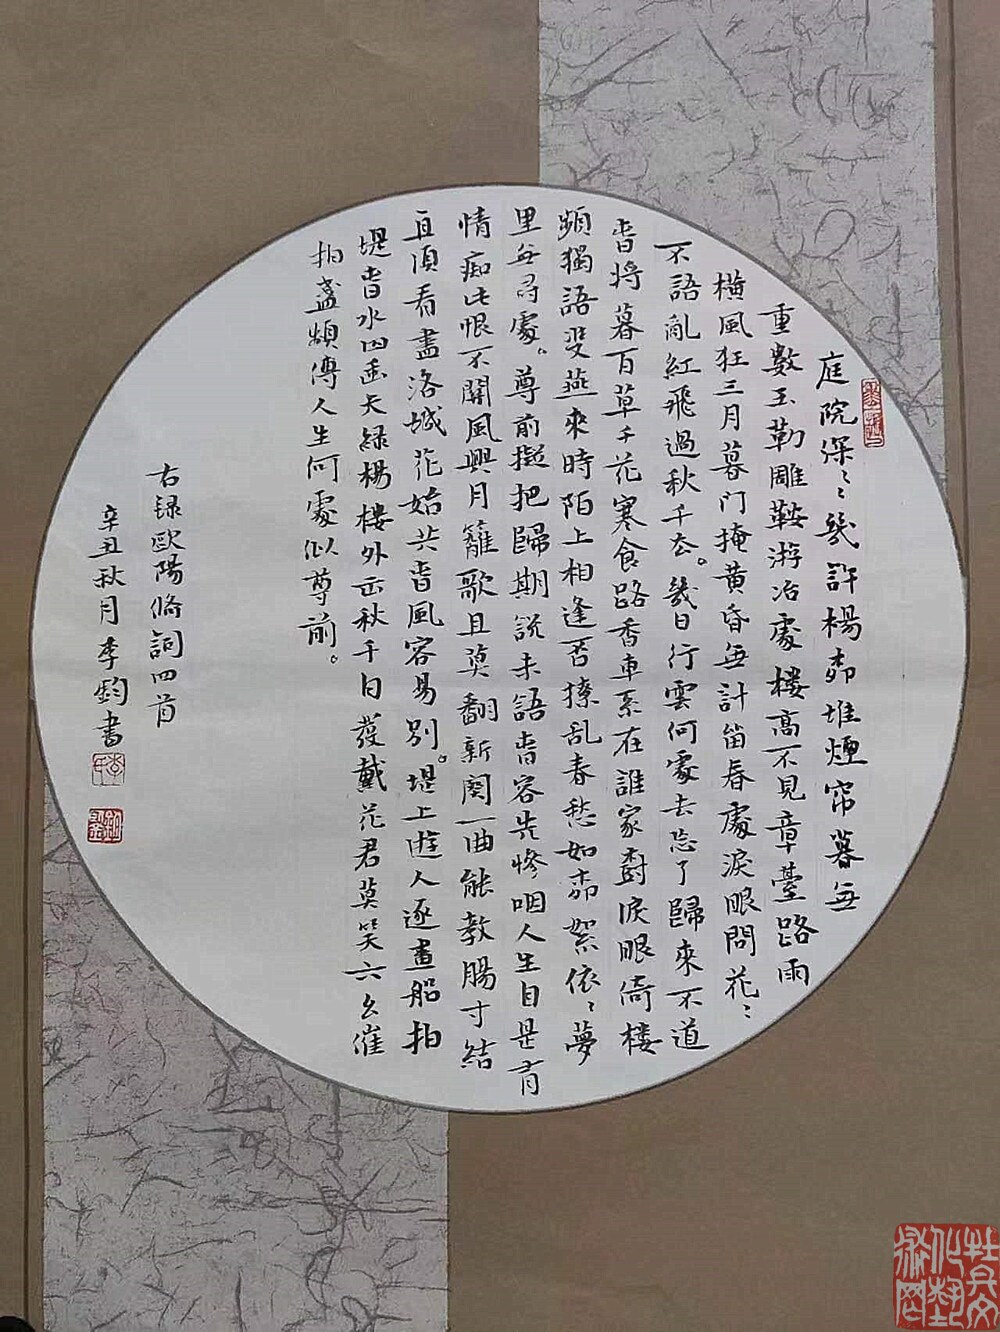 庭院深〻〻幾許楊柳堆煙帘幕無
重數玉勒雕鞍游冶處樓高不見章臺路雨
橫風狂三月暮门掩黄昏無計留春處淚眼問花〻
不語亂紅飛過秋千去。幾日行雲何處去忘了歸來不道
春將暮百草千花寒食路香車系在誰家樹淚眼倚樓
頻獨語雙燕來時陌上相逢否撩乱春愁如柳絮依〻夢
里無尋處。尊前擬把歸期說未語春容先慘咽人生自是有
情痴此恨不關風與月離歌且莫翻新闋一曲能教腸寸結
直須看盡洛城花始共春風容易别。堤上遊人逐畫船拍
堤春水四垂天緑楊樓外出秋千白髮戴花君莫笑六幺催
拍盞頻傳人生何處似尊前。
右録歐陽脩詞四首
辛丑秋月李鈞書